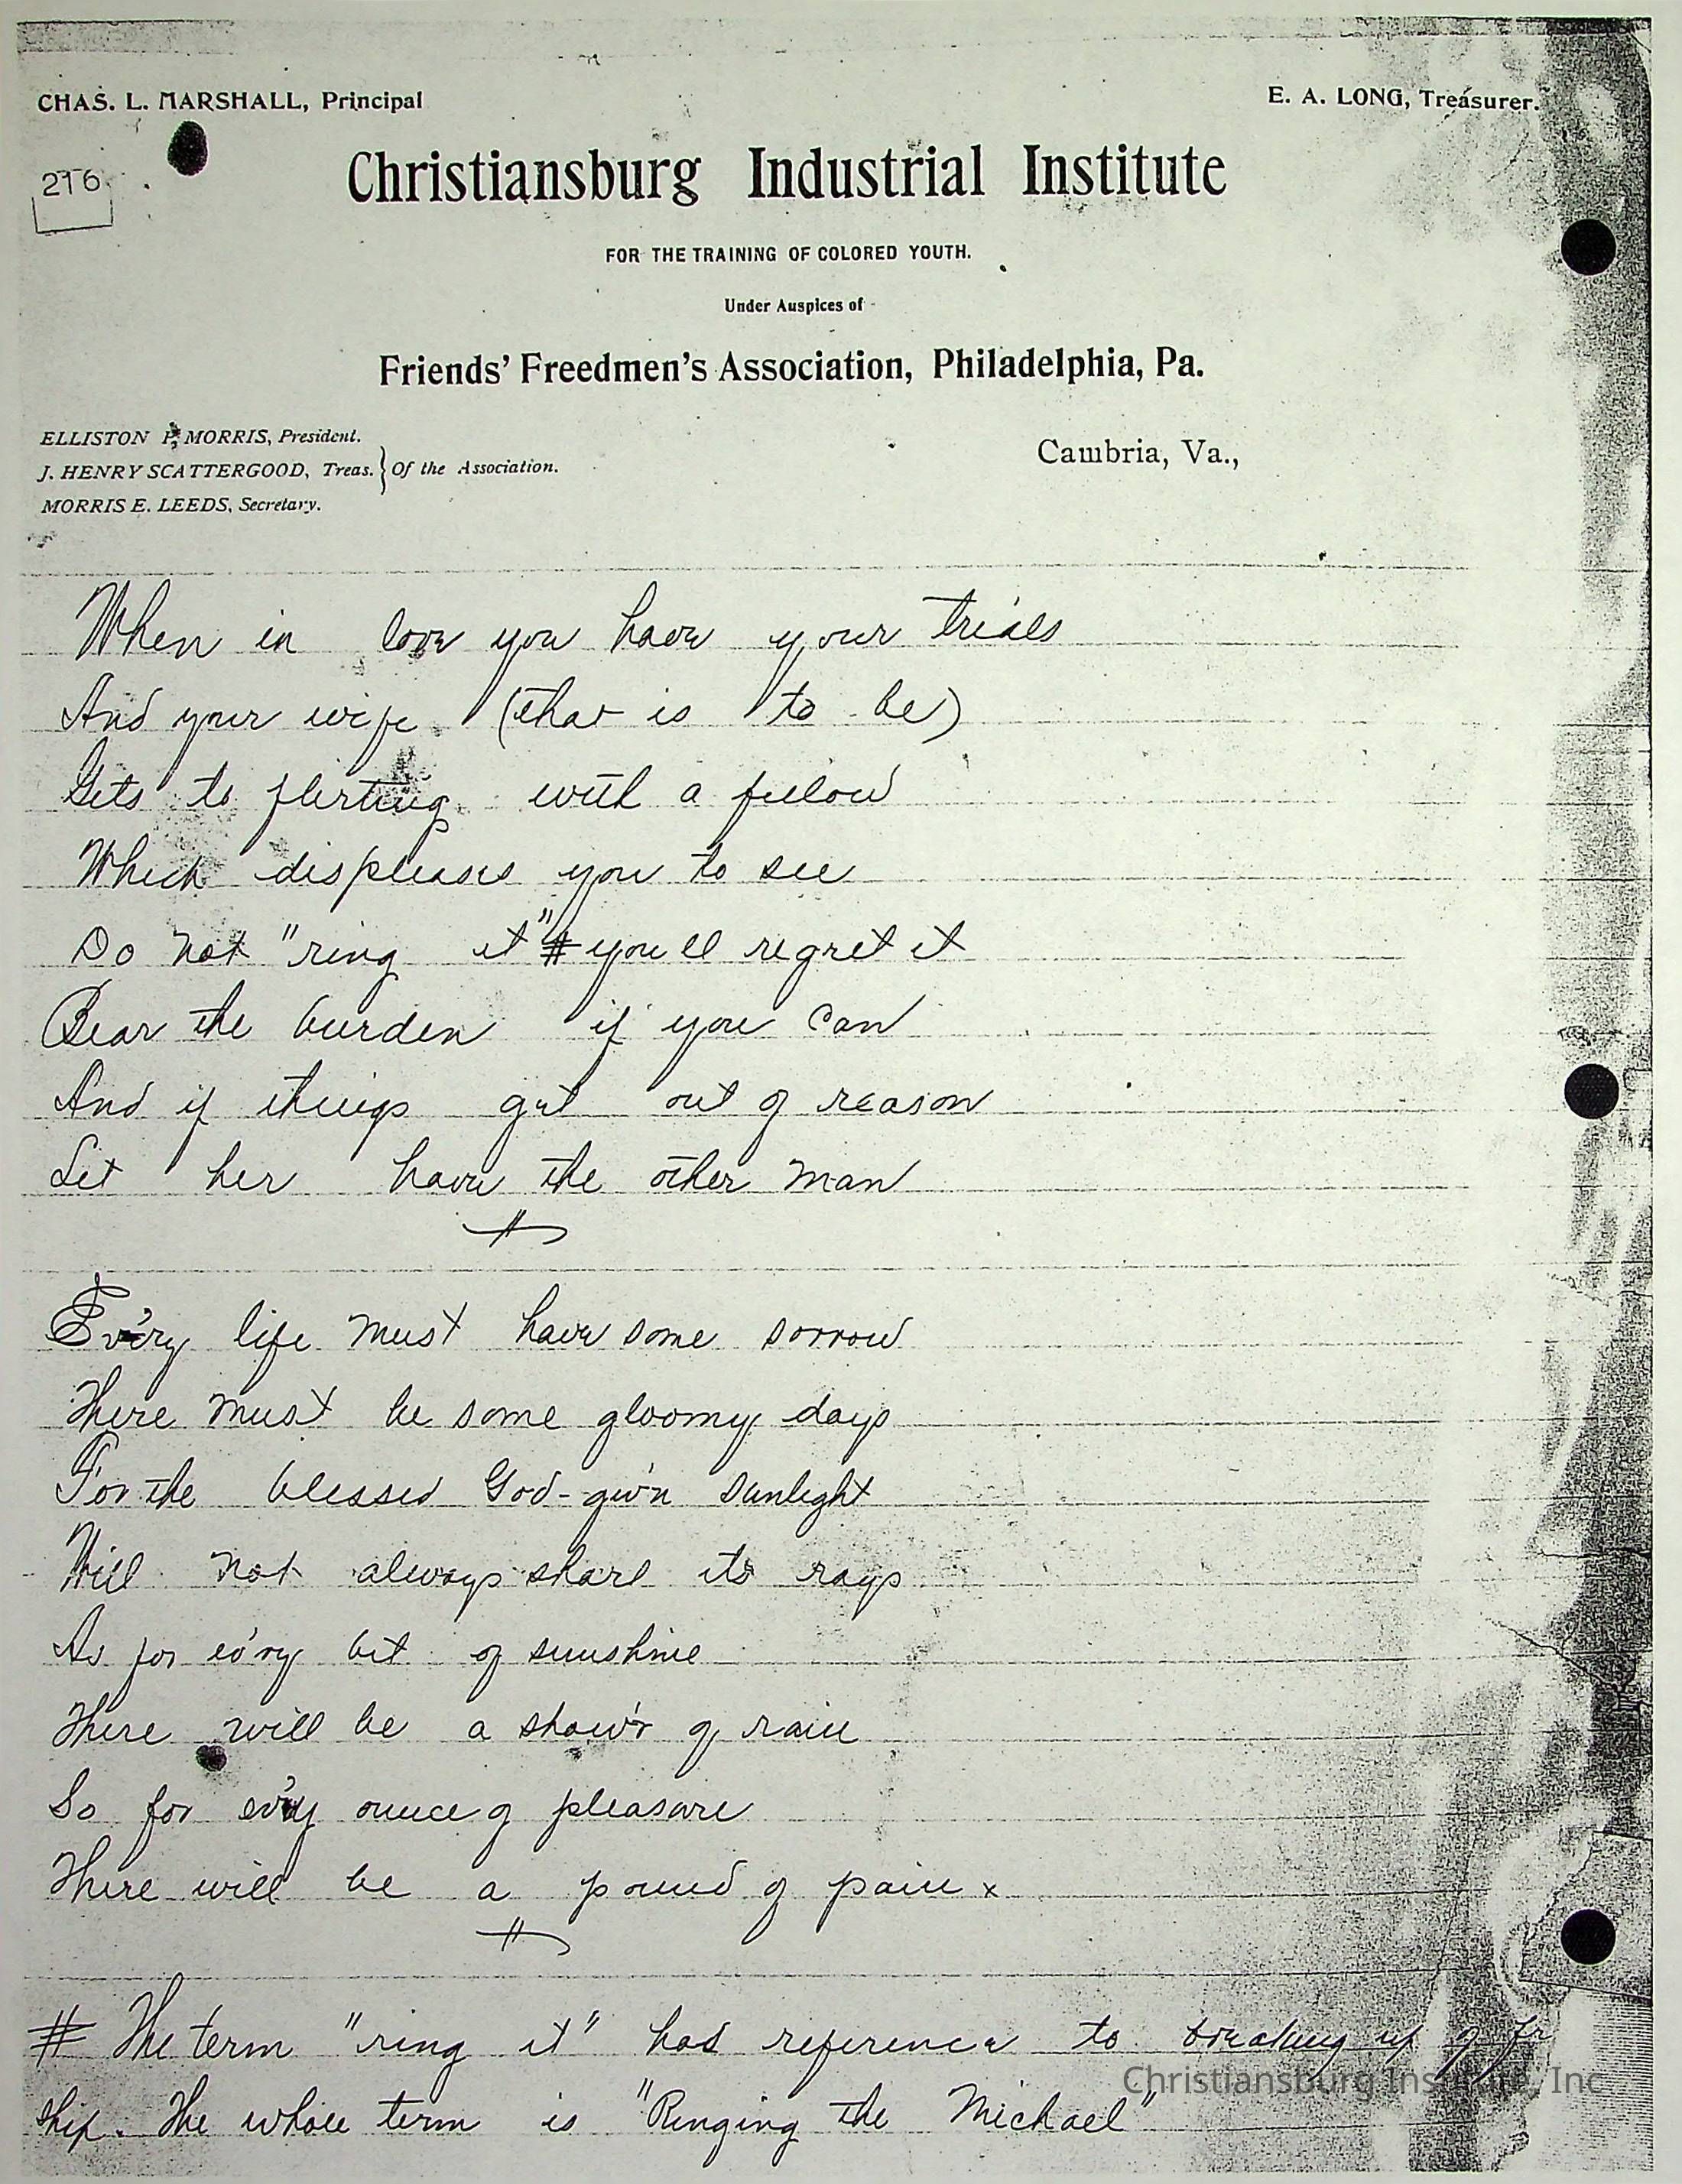 CHAS. L. MARSHALL, Principal
E. A. LONG, Treasurer.
276
Christiansburg Industrial Institute
FOR THE TRAINING OF COLORED YOUTH.
Under Auspices of
Friends' Freedmen's Association, Philadelphia, Pa.
ELLISTON P. MORRIS, President.
J. HENRY SCATTERGOOD, Treas. } Of the Association.
MORRIS E. LEEDS, Secretary.
Cambria, Va.,
When in love you have your trials
And your wife (that is to be)
Gets to flirting with a fellow
Which displeases you to see
Do not "ring it" # you'll regret it
Bear the burden if you can
And if things get out of reason
Let her have the other man
Ev'ry life must have some sorrow
There must be some gloomy days
For the blessed God-giv'n sunlight
Will not always share its rays
As for ev'ry bit of sunshine
There will be a show'r of rain
So for ev'ry ounce of pleasure
There will be a pound of pain x
# The term "ring it" has reference to breaking up of fr
ship. The whole term is "Ringing the Michael"
Christiansburg Institute, Inc